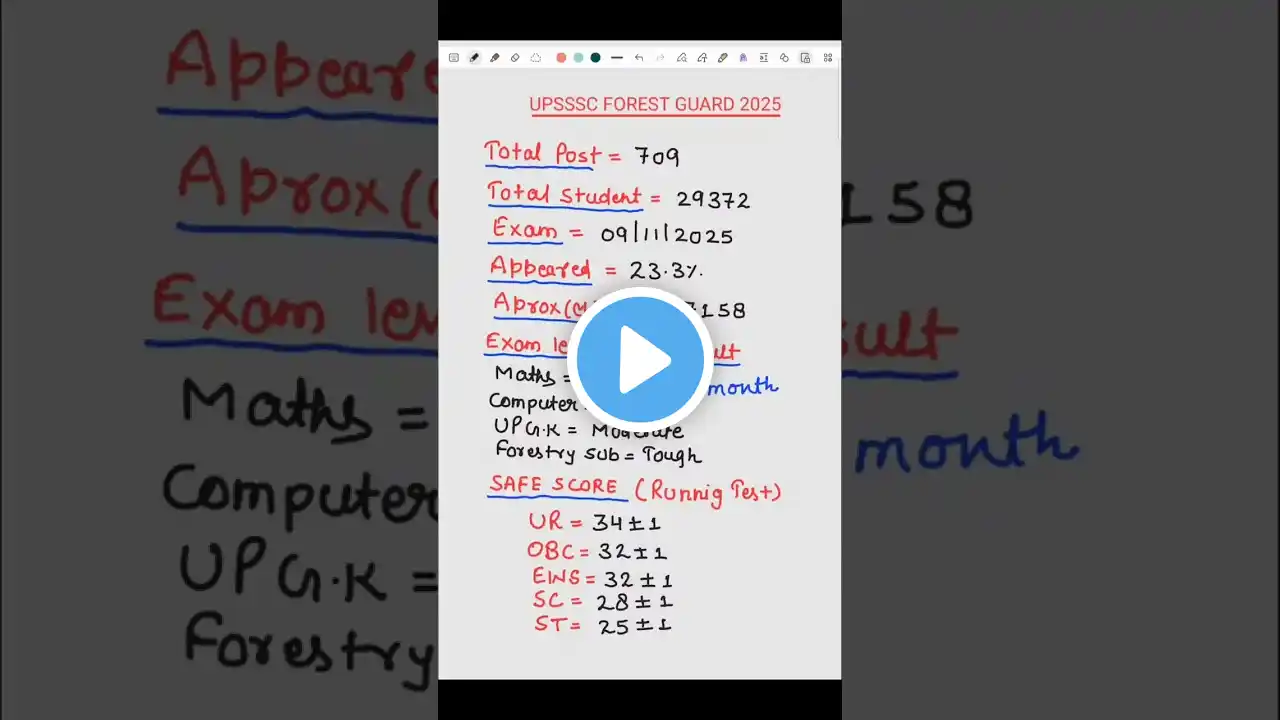 UPSSSC FOREST GUARD 2025
Total Post = 709
Total Student = 29372
Exam = 09/11/2025
Appeared = 23.3%.
Aprox( 158
Exam
month
Maths =
Computer
UP G.K = Moderate
Forestry sub = Tough
SAFE SCORE (Runnig Test)
UR = 34 ± 1
OBC = 32 ± 1
EWS = 32 ± 1
SC = 28 ± 1
ST = 25 ± 1